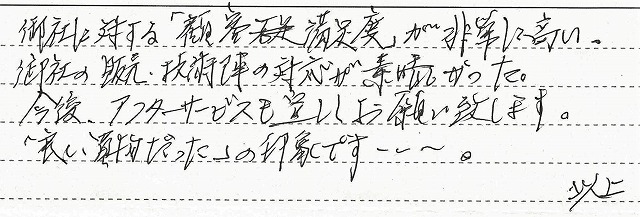 御社に対する「顧客満足度」が非常に高い。
御社の販売・技術陣の対応が素晴しかった。
今後、アフターサービスも宜しくお願い致します。
「良い買物だった」の印象です---~。
以上